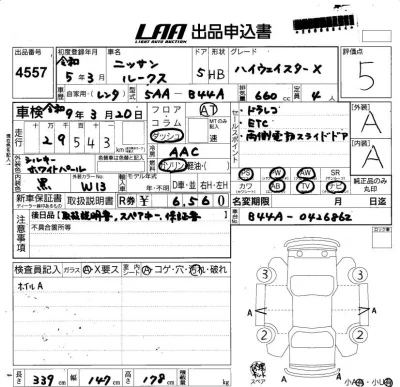 LAA 出品申込書
LIGHT AUTO AUCTION
出品番号 4557
初度登録年月 令和 5年3月
車名 ニッサン ルークス
ドア 形状 5HB
グレード ハイウェイスターX
評価点 5
車歴 自家用・レンタ
型式 5AA-B44A
排気量 660 cc
定員 4人
車検 令和 9年3月20日
走行 十万 万 千 百 十
29543
フロア コラム ダッシュ
AT
MTのみ記入 速
セールスポイント
・ドラレコ
・ETC
・両側電動スライドドア
【外装】 A
【内装】 A
外装色 シルキーホワイトパール
冷房 AAC
燃料 ガソリン 軽油・( )
内装色 黒
外装カラーNo. W13
輸入車 モデル年式 年・不明
D車・並 右H・左H
PS PW AW SR
カワ AB TV ナビ
純正品のみ丸印
新車保証書 取扱説明書
R券 ¥ 6,560
名変期限 月 日迄
車台No. B44A-0426862
注意事項
後日品【取扱説明書、スペアキー、保証書】
不具合箇所等
検査員記入 ガラス A・X要ス 内シート A・コゲ・穴・汚れ・破れ
ホイルA
3 3
A A
2 2
スペア
小A 小U
長さ 339 cm 幅 147 cm 高さ 178 cm 積載量 kg